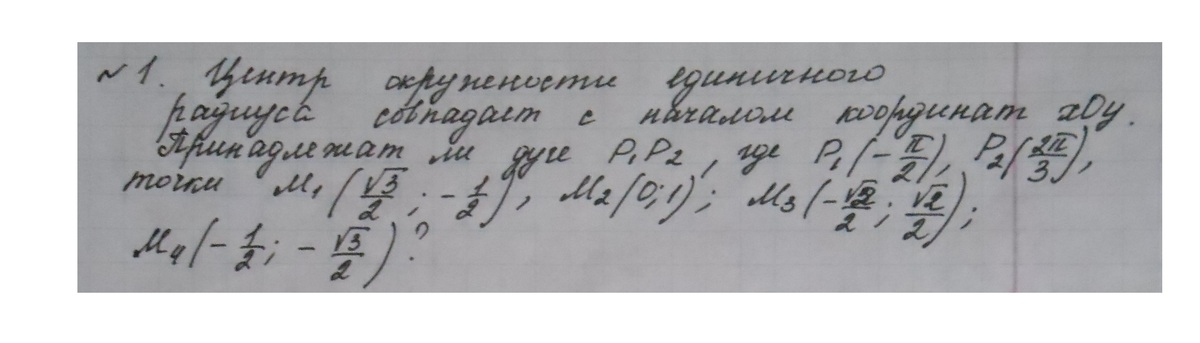 №1. Центр окружности единичного
радиуса совпадает с началом координат xOy.
Принадлежат ли дуге P₁P₂, где P₁(-π/2), P₂(2π/3),
точки M₁(√3/2; -1/2), M₂(0;1); M₃(-√2/2; √2/2);
M₄(-1/2; -√3/2)?